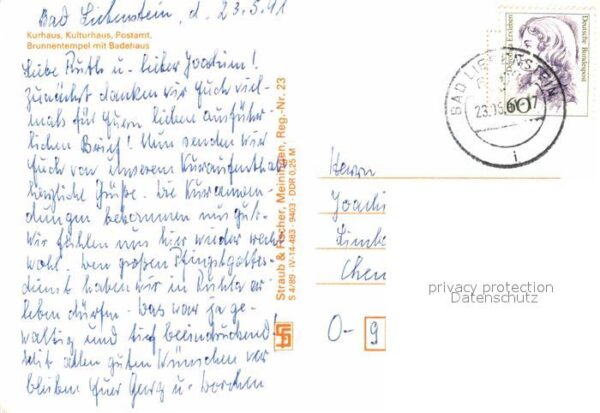 Bad Liebenstein, d. 23.5.91
Kurhaus, Kulturhaus, Postamt,
Brunnentempel mit Badehaus
Liebe Ruth u. lieber Joachim!
Zunächst danken wir Euch viel-
mals für Euern lieben ausführ-
lichen Brief! Nun senden wir
Euch von unserem Kuraufenthalt
herzliche Grüße. Die Kuranwen-
dungen bekommen uns gut.
Wir fühlen uns hier wieder
wohl. Den großen Pfingstgottes-
dienst haben wir in er-
leben dürfen. Das war ja ge-
waltig und tief beeindruckend!
Mit allen guten Wünschen ver-
bleiben Euer Georg u.
Straub & Fischer, Meiningen, Reg.-Nr. 23
S 4/89 IV-14-483 · 9403 DDR 0,25 M
Deutsche Bundespost
Erxleben
60
BAD LIEBENSTEIN
i
Herrn
Joachi
Chem
privacy protection
Datenschutz
O- 9